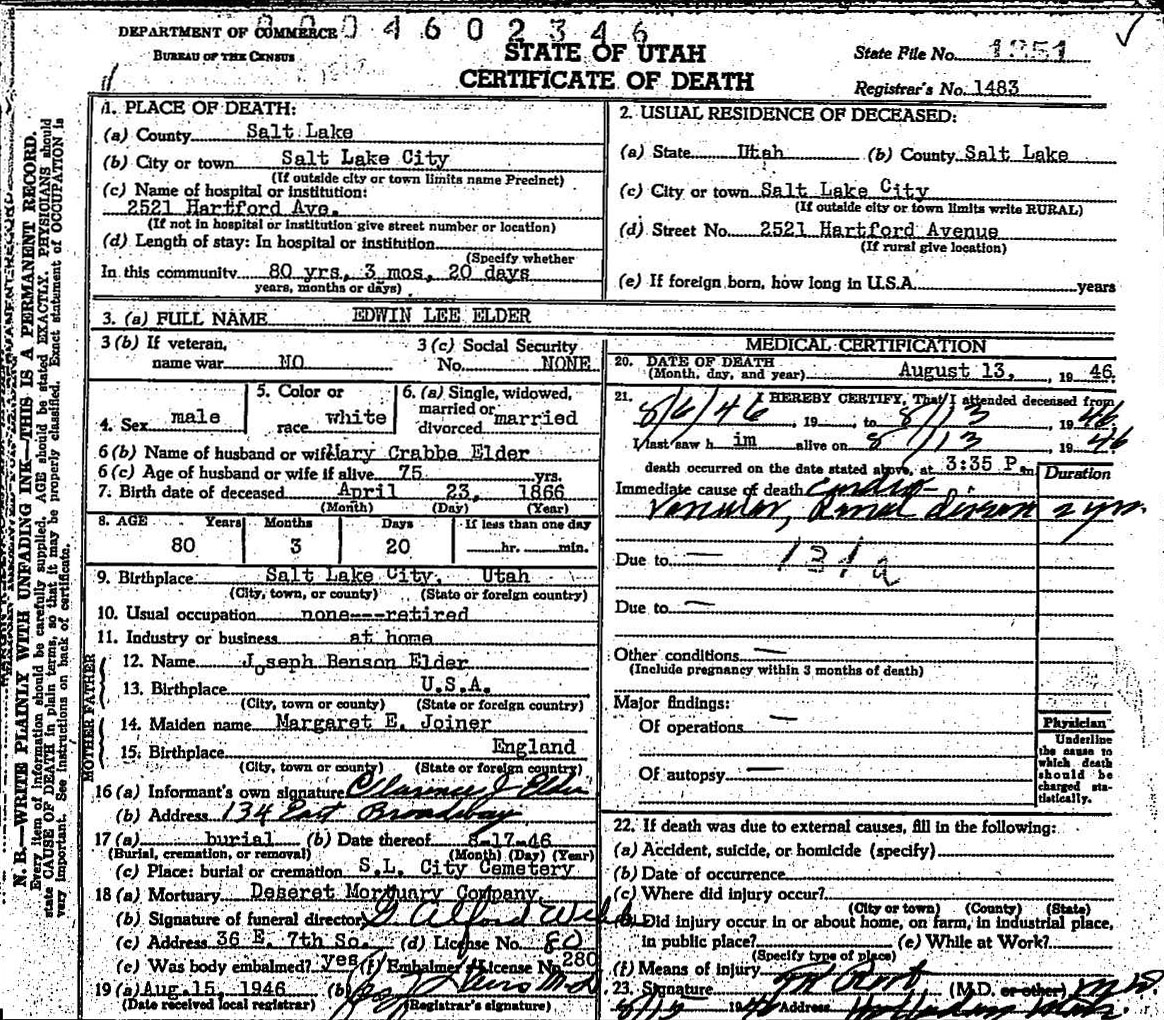 DEPARTMENT OF COMMERCE
BUREAU OF THE CENSUS
04602346
STATE OF UTAH
CERTIFICATE OF DEATH
State File No. 1351
Registrar's No. 1483
N. B.—WRITE PLAINLY WITH UNFADING INK—THIS IS A PERMANENT RECORD.
Every item of information should be carefully supplied. AGE should be stated EXACTLY. PHYSICIANS should
state CAUSE OF DEATH in plain terms, so that it may be properly classified. Exact statement of OCCUPATION is
very important. See instructions on back of certificate.
1. PLACE OF DEATH:
(a) County Salt Lake
(b) City or town Salt Lake City
(If outside city or town limits name Precinct)
(c) Name of hospital or institution:
2521 Hartford Ave.
(If not in hospital or institution give street number or location)
(d) Length of stay: In hospital or institution
(Specify whether
In this community 80 yrs, 3 mos, 20 days
years, months or days)
2. USUAL RESIDENCE OF DECEASED:
(a) State Utah (b) County Salt Lake
(c) City or town Salt Lake City
(If outside city or town limits write RURAL)
(d) Street No. 2521 Hartford Avenue
(If rural give location)
(e) If foreign born, how long in U.S.A. years
3. (a) FULL NAME EDWIN LEE ELDER
3 (b) If veteran,
name war NO
3 (c) Social Security
No. NONE
4. Sex male
5. Color or
race white
6. (a) Single, widowed,
married or
divorced married
6 (b) Name of husband or wife Mary Crabbe Elder
6 (c) Age of husband or wife if alive 75 yrs.
7. Birth date of deceased April 23, 1866
(Month) (Day) (Year)
8. AGE Years Months Days If less than one day
80 3 20 hr. min.
9. Birthplace Salt Lake City, Utah
(City, town, or county) (State or foreign country)
10. Usual occupation none---retired
11. Industry or business at home
FATHER
12. Name Joseph Benson Elder
13. Birthplace U.S.A.
(City, town or county) (State or foreign country)
MOTHER
14. Maiden name Margaret E. Joiner
15. Birthplace England
(City, town or county) (State or foreign country)
16 (a) Informant's own signature Clarence J Elder
(b) Address 134 East Broadway
17 (a) burial (b) Date thereof 8-17-46
(Burial, cremation, or removal) (Month) (Day) (Year)
(c) Place: burial or cremation S.L. City Cemetery
18 (a) Mortuary Deseret Mortuary Company
(b) Signature of funeral director
(c) Address 36 E. 7th So. (d) License No. 80
(e) Was body embalmed? yes (f) Embalmer's License No. 280
19 (a) Aug. 15, 1946 (b)
(Date received local registrar) (Registrar's signature)
MEDICAL CERTIFICATION
20. DATE OF DEATH
(Month, day, and year) August 13, 1946
21. I HEREBY CERTIFY, That I attended deceased from
8/6/46, 19 , to 8/13, 1946
I last saw h im alive on 8/13, 1946
death occurred on the date stated above, at 3:35 P m
Duration
Immediate cause of death Cardio-
Vascular, Renal disease 2 yrs.
Due to — 131a
Due to —
Other conditions —
(Include pregnancy within 3 months of death)
Major findings:
Of operations —
Of autopsy —
Physician
Underline
the cause to
which death
should be
charged sta-
tistically.
22. If death was due to external causes, fill in the following:
(a) Accident, suicide, or homicide (specify)
(b) Date of occurrence
(c) Where did injury occur?
(City or town) (County) (State)
(d) Did injury occur in or about home, on farm, in industrial place,
in public place? (e) While at Work?
(Specify type of place)
(f) Means of injury
23. Signature (M.D. or other) M.D.
8/15 1946 Address